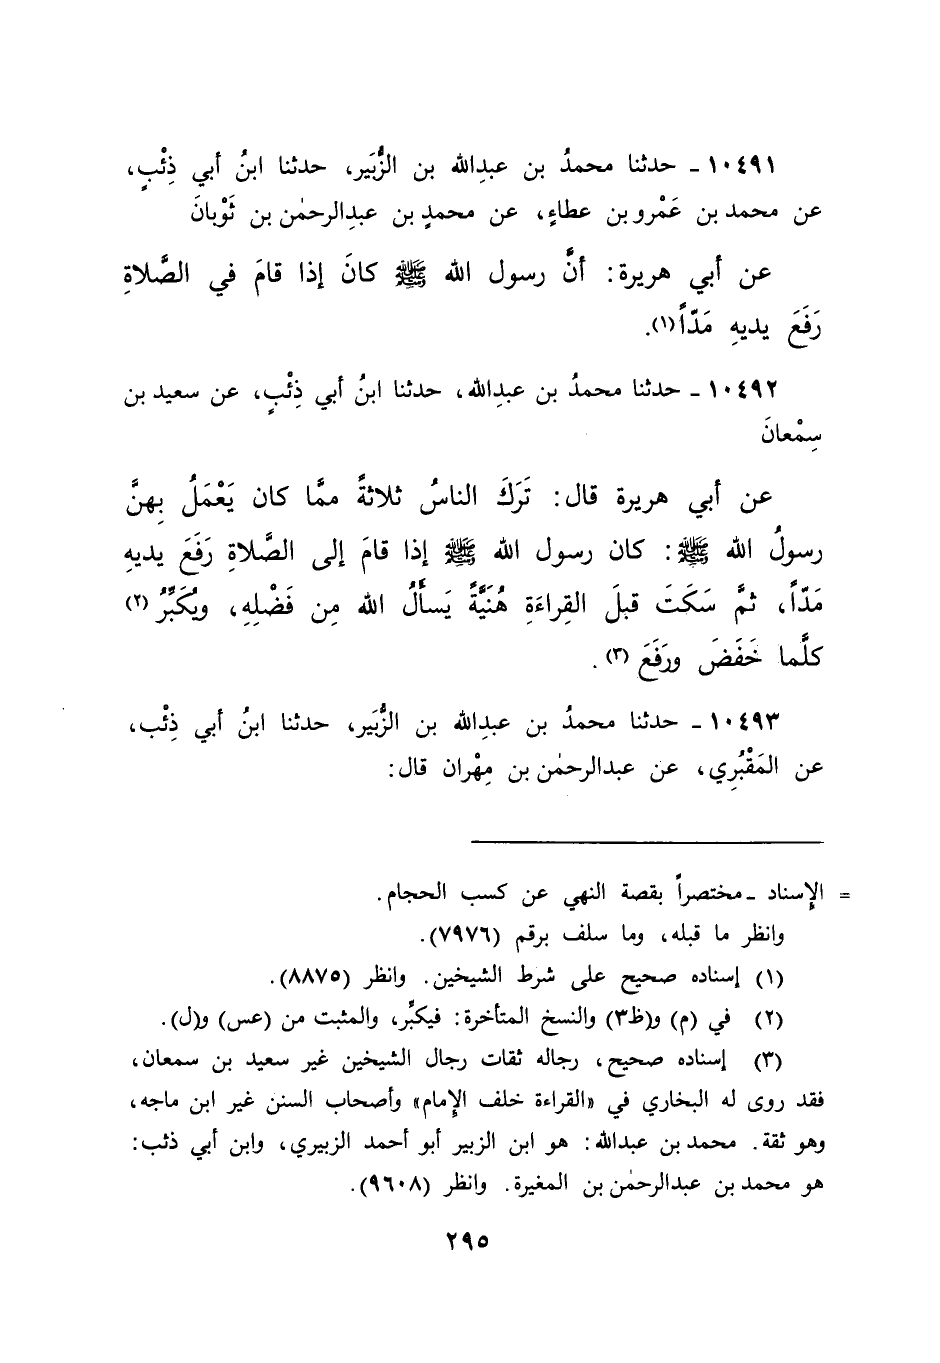 ١٠٤٩١ ـ حدثنا محمدُ بن عبدِالله بن الزُّبَير، حدثنا ابنُ أبي ذِئْبٍ،
عن محمد بن عَمْرو بن عطاءٍ، عن محمدٍ بن عبدِالرحمٰن بن ثَوْبانَ
عن أبي هريرة: أنَّ رسول الله ﷺ كانَ إذا قامَ في الصَّلاةِ
رَفَعَ يديهِ مَدّاً(١).
١٠٤٩٢ ـ حدثنا محمدُ بن عبدِالله، حدثنا ابنُ أبي ذِئْبٍ، عن سعيد بن
سِمْعانَ
عن أبي هريرة قال: تَرَكَ الناسُ ثلاثةً ممَّا كان يَعْمَلُ بِهنَّ
رسولُ الله ﷺ: كان رسول الله ﷺ إذا قامَ إلى الصَّلاةِ رَفَعَ يديهِ
مَدّاً، ثمَّ سَكَتَ قبلَ القِراءَةِ هُنَيَّةً يَسأَلُ الله مِن فَضْلِهِ، ويُكَبِّرُ(٢)
كلَّما خَفَضَ ورَفَعَ(٣).
١٠٤٩٣ ـ حدثنا محمدُ بن عبدِالله بن الزُّبَير، حدثنا ابنُ أبي ذِئْب،
عن المَقْبُرِي، عن عبدالرحمٰن بن مِهْران قال:
= الإسناد ـ مختصراً بقصة النهي عن كسب الحجام.
وانظر ما قبله، وما سلف برقم (٧٩٧٦).
(١) إسناده صحيح على شرط الشيخين. وانظر (٨٨٧٥).
(٢) في (م) و(ظ٣) والنسخ المتأخرة: فيكبِّر، والمثبت من (عس) و(ل).
(٣) إسناده صحيح، رجاله ثقات رجال الشيخين غير سعيد بن سمعان،
فقد روى له البخاري في «القراءة خلف الإمام» وأصحاب السنن غير ابن ماجه،
وهو ثقة. محمد بن عبدالله: هو ابن الزبير أبو أحمد الزبيري، وابن أبي ذئب:
هو محمد بن عبدالرحمٰن بن المغيرة. وانظر (٩٦٠٨).
٢٩٥